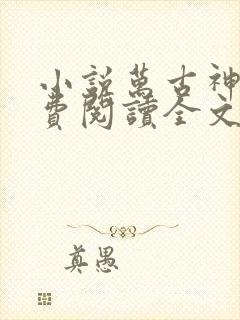 小說萬古神
費閱讀全文
真愚